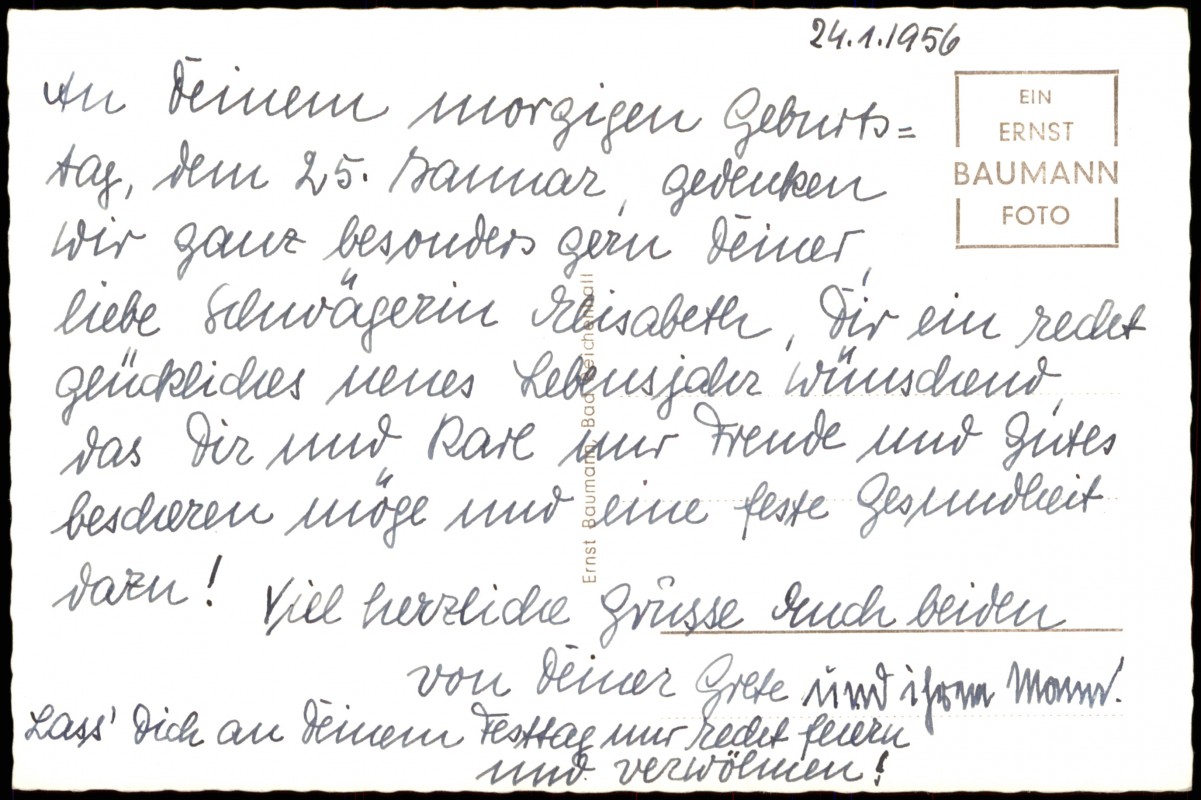 24.1.1956
An Deinem morgigen Geburts=
tag, dem 25. Januar, gedenken
wir ganz besonders gern Deiner,
liebe Schwägerin Elisabeth, Dir ein recht
glückliches neues Lebensjahr wünschend,
das Dir und Karl nur Freude und Gutes
bescheren möge und eine feste Gesundheit
dazu!
Viel herzliche Grüsse Euch beiden
von Deiner Grete und ihrem Mann!
Lass' Dich an Deinem Festtag nur recht feiern
und verwöhnen!
EIN
ERNST
BAUMANN
FOTO
Ernst Baumann, Bad Reichenhall